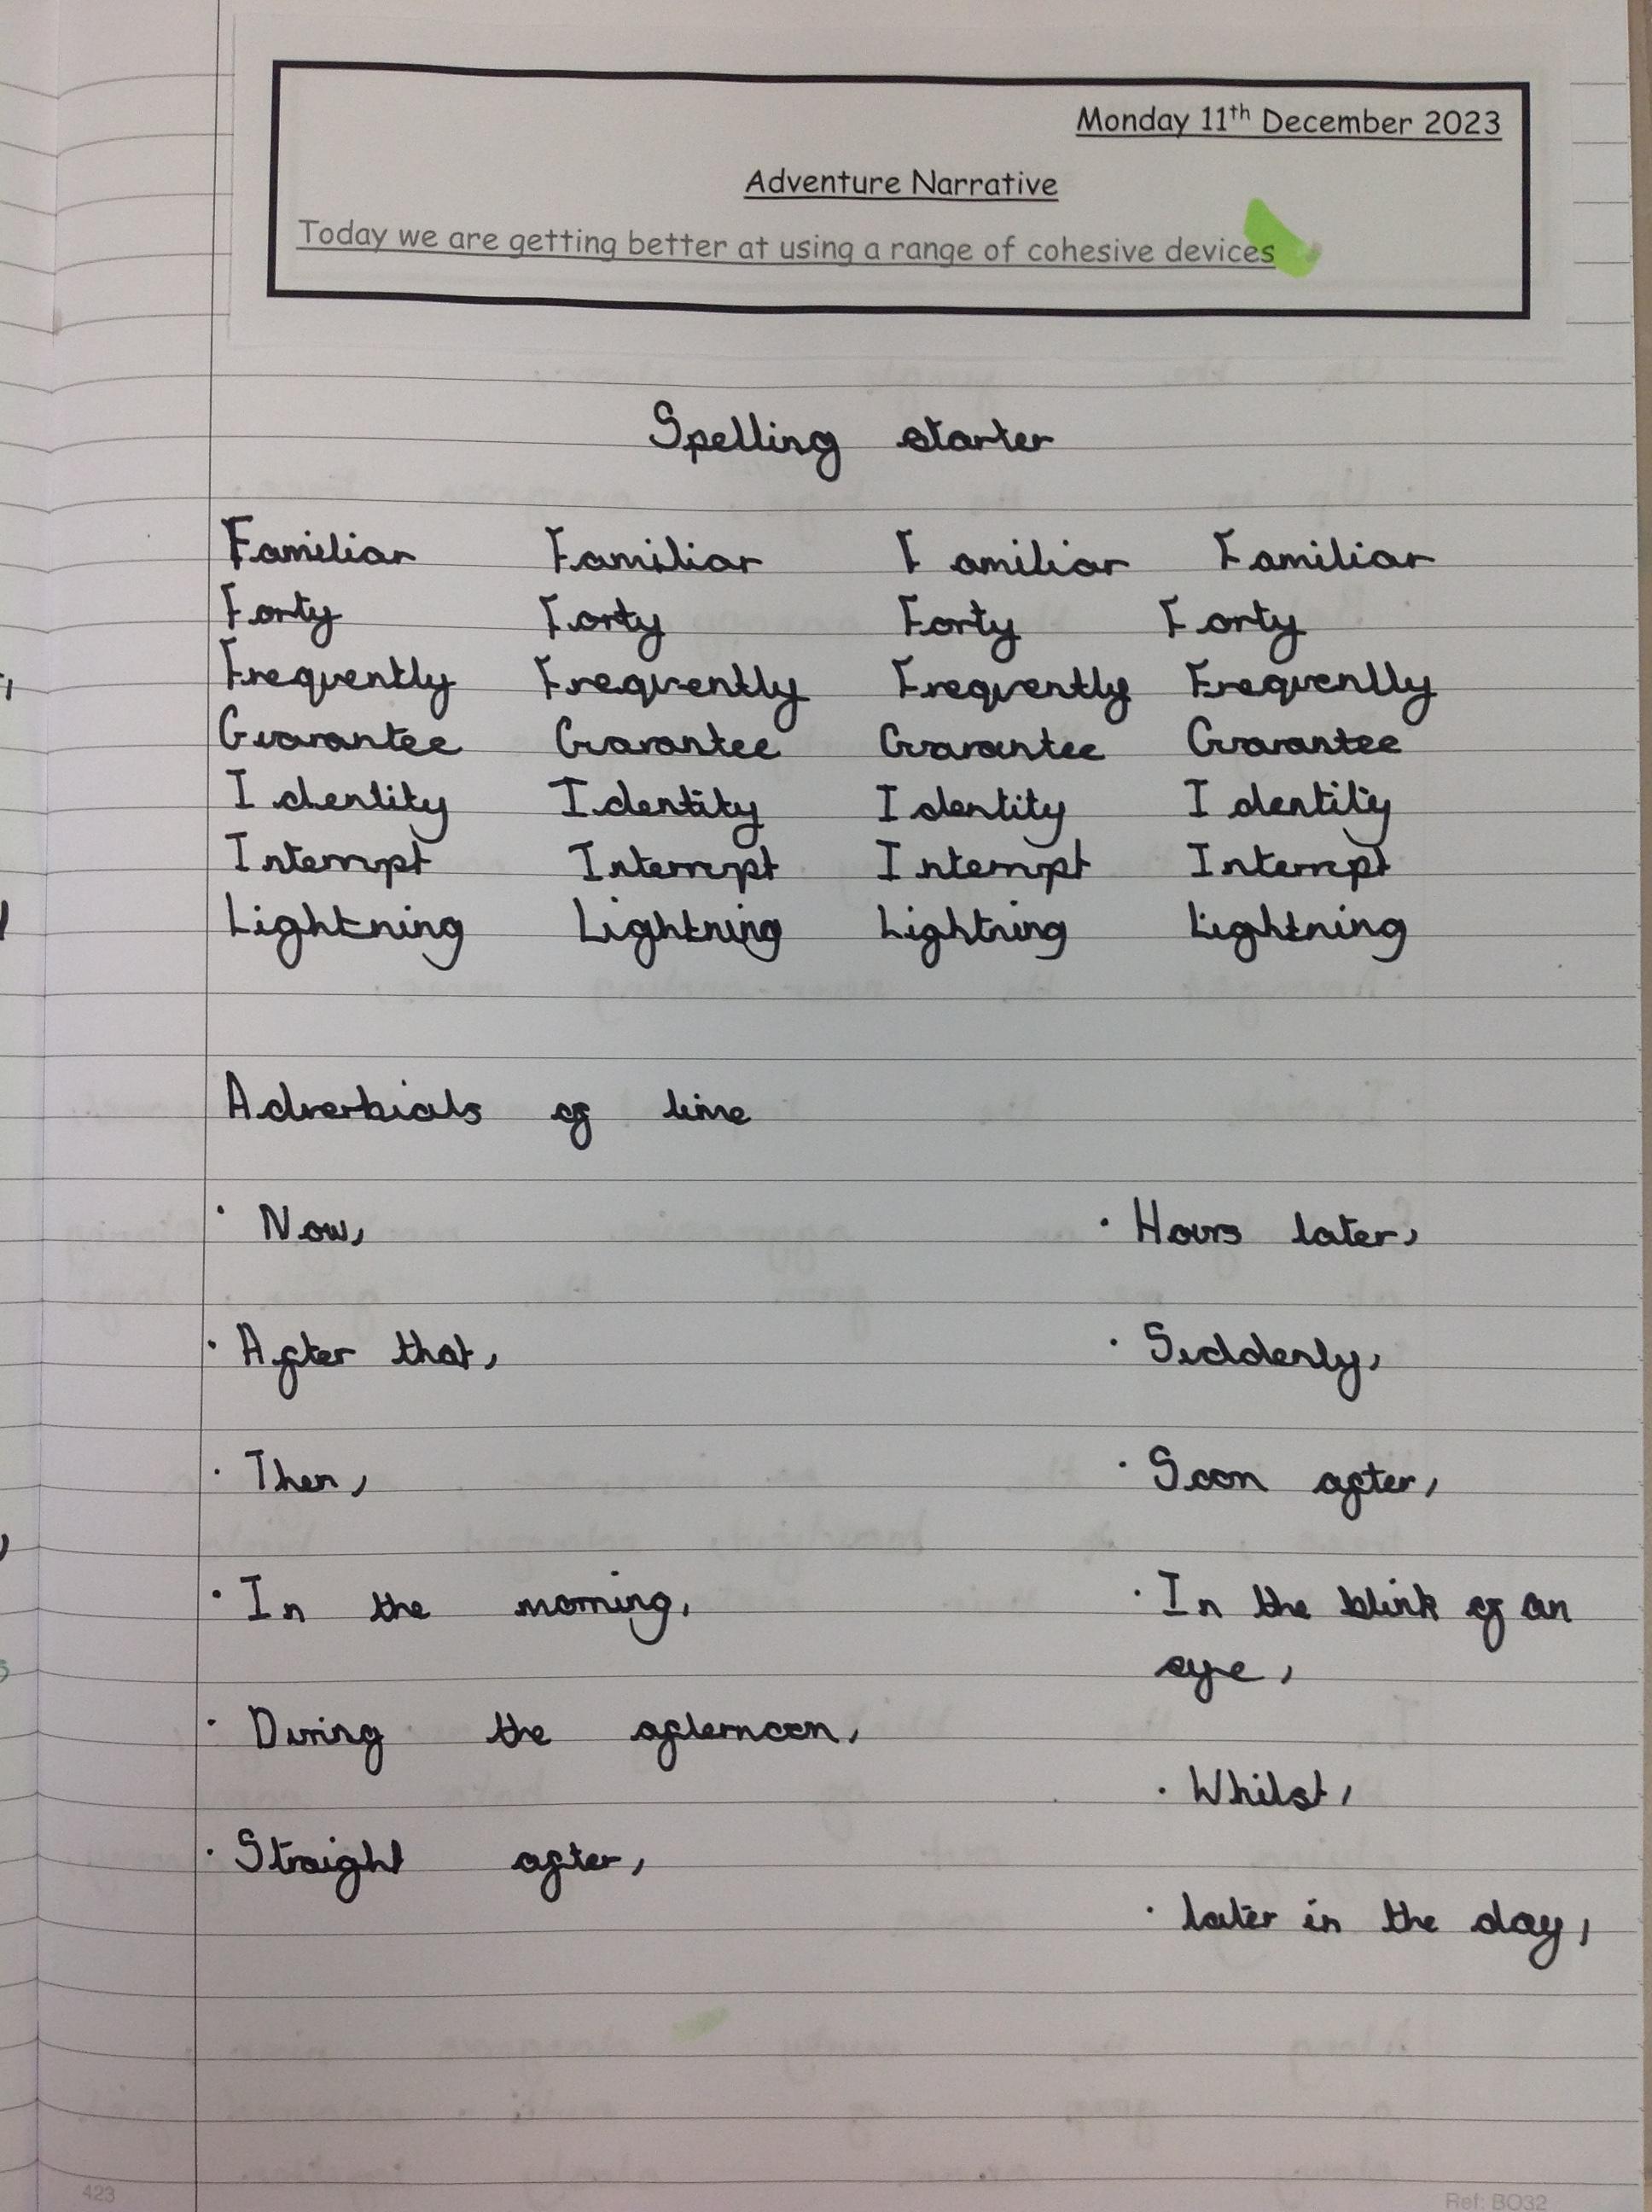 Monday 11th December 2023
Adventure Narrative
Today we are getting better at using a range of cohesive devices
Spelling starter
Familiar Familiar Familiar Familiar
Forty Forty Forty Forty
Frequently Frequently Frequently Frequently
Guarantee Guarantee Guarantee Guarantee
Identity Identity Identity Identity
Interrupt Interrupt Interrupt Interrupt
Lightning Lightning Lightning Lightning
Adverbials of time
· Now,
· After that,
· Then,
· In the morning,
· During the afternoon,
· Straight after,
· Hours later,
· Suddenly,
· Soon after,
· In the blink of an
eye,
· Whilst,
· later in the day,
423
Ref: BO32